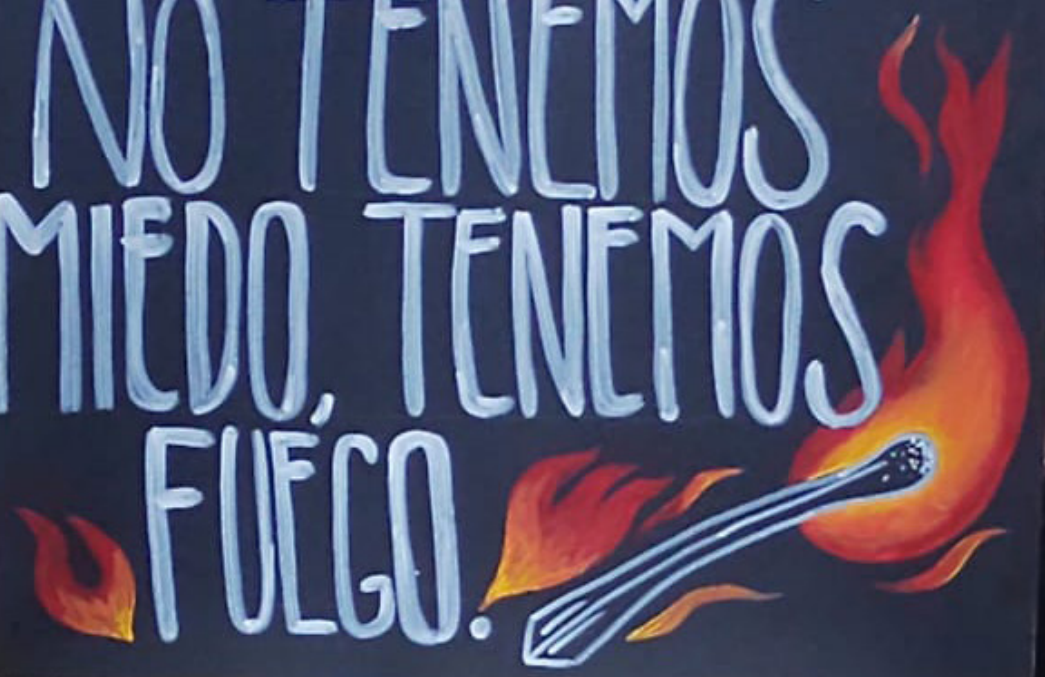 NO TENEMOS
MIEDO, TENEMOS
FUEGO.